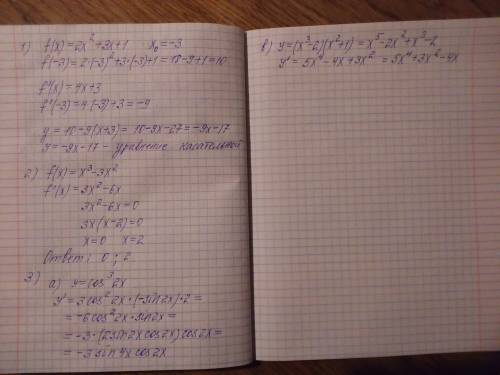 1) f(x)=2x²+3x+1    x₀=-3
f(-3)=2·(-3)²+3·(-3)+1=18-9+1=10
f'(x)=4x+3
f'(-3)=4·(-3)+3=-9
y=10-9(x+3)=10-9x-27=-9x-17
y=-9x-17 - уравнение касательной
2) f(x)=x³-3x²
f'(x)=3x²-6x
3x²-6x=0
3x(x-2)=0
x=0   x=2
Ответ: 0; 2
3) а) y=cos³2x
y'=3cos²2x·(-sin2x)·2=
=-6cos²2x·sin2x=
=-3·(2sin2xcos2x)cos2x=
=-3sin4xcos2x
в) y=(x³-2)(x²+1)=x⁵-2x²+x³-2
y'=5x⁴-4x+3x²=5x⁴+3x²-4x